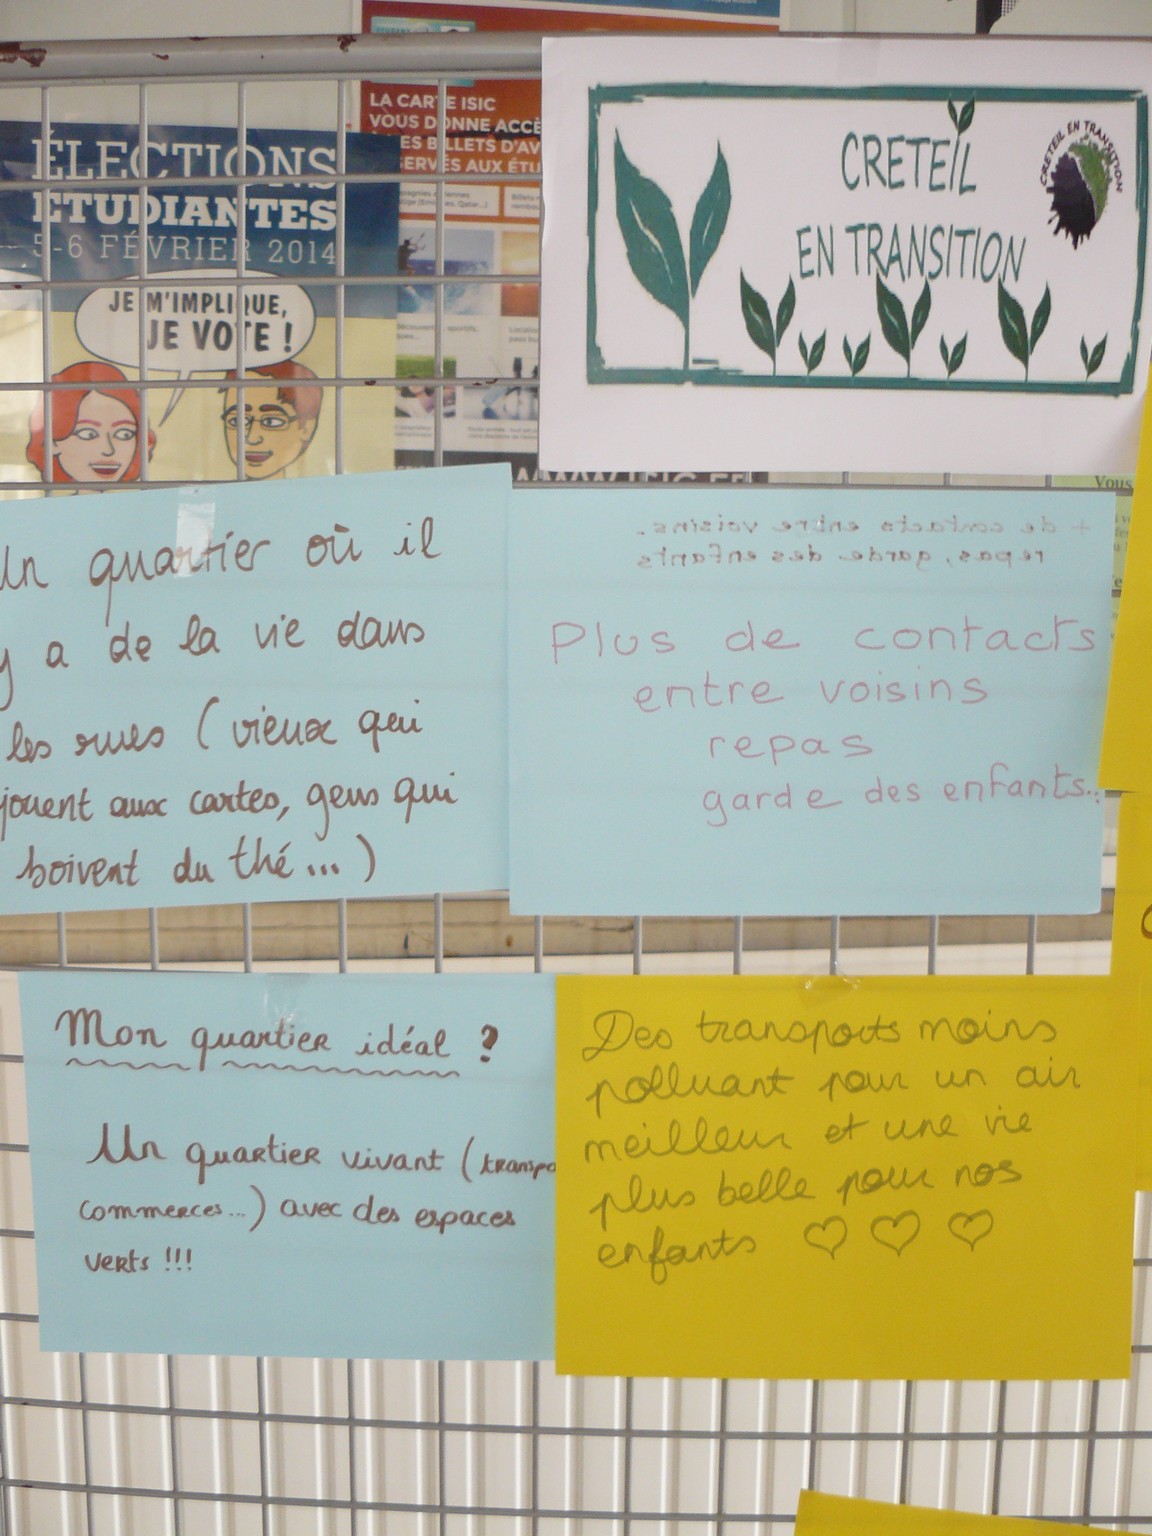 ÉLECTIONS
ÉTUDIANTES
5-6 FÉVRIER 2014
JE M'IMPLIQUE,
JE VOTE !
LA CARTE ISIC
VOUS DONNE ACCÈ
ES BILLETS D'AV
SERVÉS AUX ÉTU
CRETEIL
EN TRANSITION
CRETEIL EN TRANSITION
Vous
Un quartier où il
y a de la vie dans
les rues (vieux qui
jouent aux cartes, gens qui
boivent du thé...)
+ de contacts entre voisins.
repas, garde des enfants
Plus de contacts
entre voisins
repas
garde des enfants...
Mon quartier idéal ?
Un quartier vivant (transpo
commerces...) avec des espaces
verts !!!
Des transports moins
polluant pour un air
meilleur et une vie
plus belle pour nos
enfants ♡ ♡ ♡